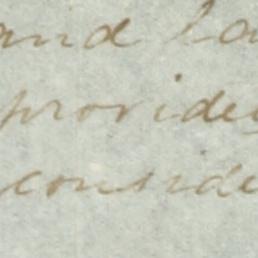 and la
provide
conside